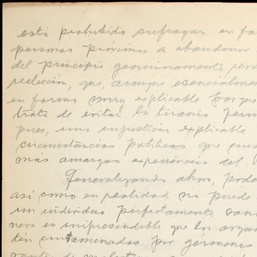 está prohibido sufragar en fa
personas próximas a abandonar
del principio genuinamente
relección, que, aunque esencialmente
en forma muy explicable
trata de evitar la tiranía
pues, una injusticia explicable
circunstancias políticas que
más amargas experiencias del
Generalizando ahora, pode
así como en realidad no puede
un individuo perfectamente sano
nos es imprescindible que los orga
tén contaminados por gérmenes